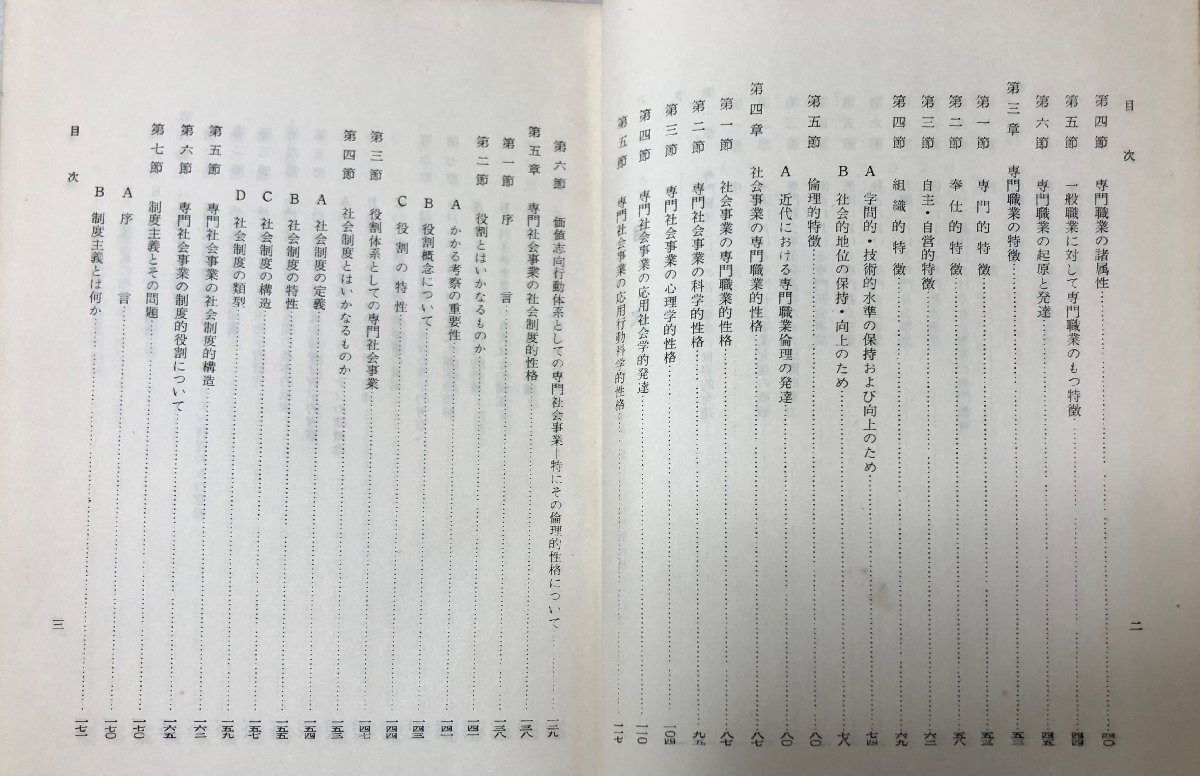 目次
第四節 専門職業の諸属性 四〇
第五節 一般職業に対して専門職業のもつ特徴 四四
第六節 専門職業の起原と発達 四五
第三章 専門職業の特徴 五三
第一節 専門的特徴 五三
第二節 奉仕的特徴 五八
第三節 自主・自営的特徴 六二
第四節 組織的特徴 六九
A 学問的・技術的水準の保持および向上のため 七四
B 社会的地位の保持・向上のため 七八
第五節 倫理的特徴 八〇
A 近代における専門職業倫理の発達 八〇
第四章 社会事業の専門職業的性格 八七
第一節 社会事業の専門職業的性格 八七
第二節 専門社会事業の科学的性格 九五
第三節 専門社会事業の心理学的性格 一〇四
第四節 専門社会事業の応用社会学的発達 一一〇
第五節 専門社会事業の応用行動科学的性格 一一七
二
第六節 価値志向行動体系としての専門社会事業―特にその倫理的性格について 一二九
第五章 専門社会事業の社会制度的性格 一三八
第一節 序言 一三八
第二節 役割とはいかなるものか 一四一
A かかる考察の重要性 一四一
B 役割概念について 一四三
C 役割の特性 一四四
第三節 役割体系としての専門社会事業 一四七
第四節 社会制度とはいかなるものか 一五三
A 社会制度の定義 一五四
B 社会制度の特性 一五五
C 社会制度の構造 一五七
D 社会制度の類型 一五九
第五節 専門社会事業の社会制度的構造 一六二
第六節 専門社会事業の制度的役割について 一六五
第七節 制度主義とその問題 一七〇
A 序言 一七〇
B 制度主義とは何か 一七二
目次
三